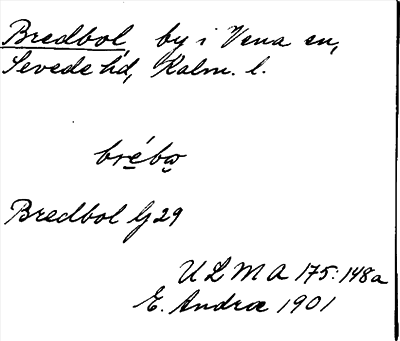 Bredbol, by i Vena sn,
Sevede hd, Kalm. l.
brébω
Bredbol G 29
ULMA 175:148a
E. Andræ 1901